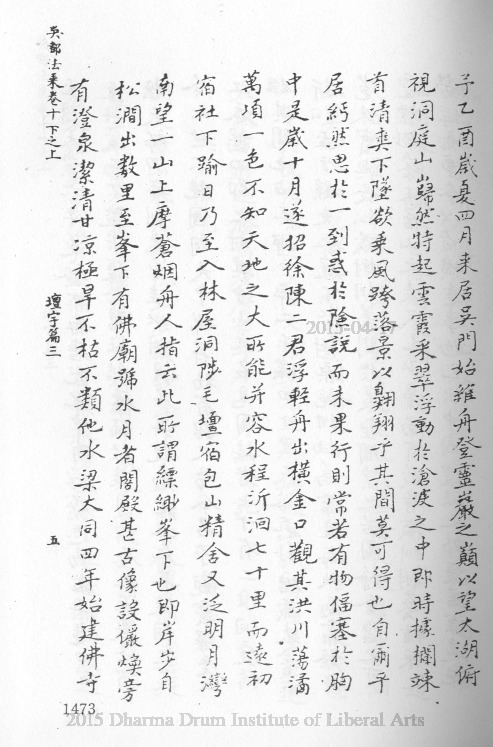 予乙酉歲夏四月来居吴門始維舟登靈巖之巔以望太湖俯
視洞庭山巋然特起雲霞采翠浮動於滄波之中即時據攔竦
首清爽下墜欲乗風跨落景以翱翔乎其間莫可得也自爾平
居緬然思於一到惑於險説而未果行則常若有物偪塞於胸
中是歲十月遂招徐陳二君浮輕舟出橫金口觀其洪川蕩潏
萬項一色不知天地之大所能并容水程沂洄七十里而遠初
宿社下踰日乃至入林屋洞陟毛壇宿包山精舍又泛明月灣
南望一山上摩蒼烟舟人指云此所謂縹緲峯下也即岸步自
松澗出数里至峯下有佛廟號水月者閣殿甚古像設儼煥旁
有澄泉潔清甘凉極旱不枯不類他水梁大同四年始建佛寺
吳都法乘卷十下之上
壇宇篇三
五
1473
2015-04-17
2015 Dharma Drum Institute of Liberal Arts